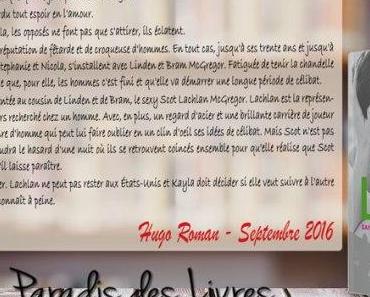 du tout espoir en l'amour.
la, les opposés ne font pas que s'attirer, ils éclatent.
réputation de fêtarde et de croqueuse d'hommes. En tout cas, jusqu'à ses trente ans et jusqu'à
tephanie et Nicola, s'installent avec Linden et Bram McGregor. Fatiguée de tenir la chandelle
e que, pour elle, les hommes c'est fini et qu'elle va démarrer une longue période de célibat.
ntée au cousin de Linden et de Bram, le sexy Scot Lachlan McGregor. Lachlan est la représen-
rs recherché chez un homme. Avec, en plus, un regard d'acier et une brillante carrière de joueur
re d'homme qui peut lui faire oublier en un clin d'oeil ses idées de célibat. Mais Scot n'est pas
udra le hasard d'une nuit où ils se retrouvent coincés ensemble pour qu'elle réalise que Scot
'il laisse paraître.
er. Lachlan ne peut pas rester aux États-Unis et Kayla doit décider si elle veut suivre à l'autre
onnaît à peine.
Hugo Roman - Septembre 2016
Paradis des Livres